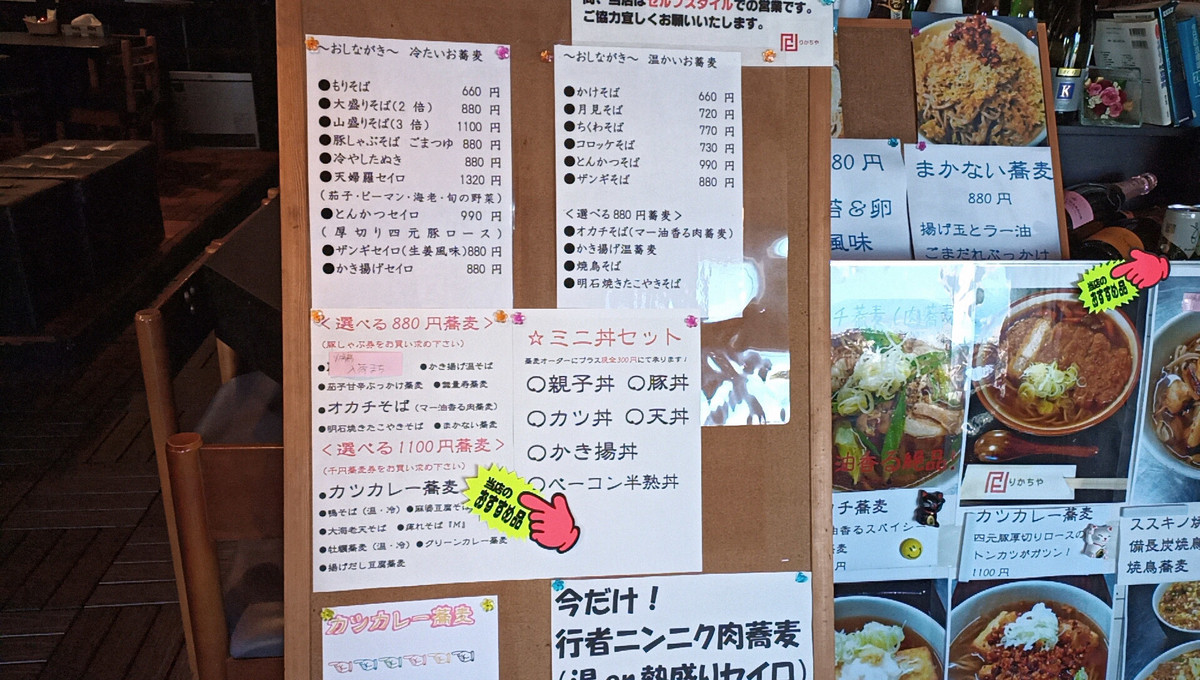 尚、当店はセルフスタイルでの営業です。
ご協力宜しくお願いいたします。
りかちや
～おしながき～ 冷たいお蕎麦
●もりそば 660 円
●大盛りそば(2 倍) 880 円
●山盛りそば(3 倍) 1100 円
●豚しゃぶそば ごまつゆ 880 円
●冷やしたぬき 880 円
●天婦羅セイロ 1320 円
(茄子・ピーマン・海老・旬の野菜)
●とんかつセイロ 990 円
(厚切り四元豚ロース)
●ザンギセイロ(生姜風味)880 円
●かき揚げセイロ 880 円
～おしながき～ 温かいお蕎麦
●かけそば 660 円
●月見そば 720 円
●ちくわそば 770 円
●コロッケそば 730 円
●とんかつそば 990 円
●ザンギそば 880 円
＜選べる880円蕎麦＞
●オカチそば(マー油香る肉蕎麦)
●かき揚げ温蕎麦
●焼鳥そば
●明石焼きたこやきそば
＜選べる880円蕎麦＞
(豚しゃぶ券をお買い求め下さい)
●かき揚げ温そば
●茄子甘辛ぶっかけ蕎麦
●オカチそば(マー油香る肉蕎麦)
●明石焼きたこやきそば ●まかない蕎麦
＜選べる1100円蕎麦＞
(千円蕎麦券をお買い求め下さい)
●カツカレー蕎麦
●鴨そば(温・冷) ●麻婆豆腐そば
●大海老天そば ●痺れそば『M』
●牡蠣蕎麦(温・冷) ●グリーンカレー蕎麦
●揚げだし豆腐蕎麦
当店の
おすすめ品
☆ミニ丼セット
蕎麦オーダーにプラス現金300円にて承ります！
〇親子丼 〇豚丼
〇カツ丼 〇天丼
〇かき揚丼
〇ベーコン半熟丼
カツカレー蕎麦
今だけ！
行者ニンニク肉蕎麦
(温or熱盛りセイロ)
80円
苔&卵
風味
まかない蕎麦
880円
揚げ玉とラー油
ごまだれぶっかけ
当店の
おすすめ品
油香る絶品！
りかちや
チ蕎麦
油香るスパイシー
蕎麦
円
カツカレー蕎麦
四元豚厚切りロースの
トンカツがガツン！
1100円
ススキノ
備長炭焼鳥
焼鳥蕎麦